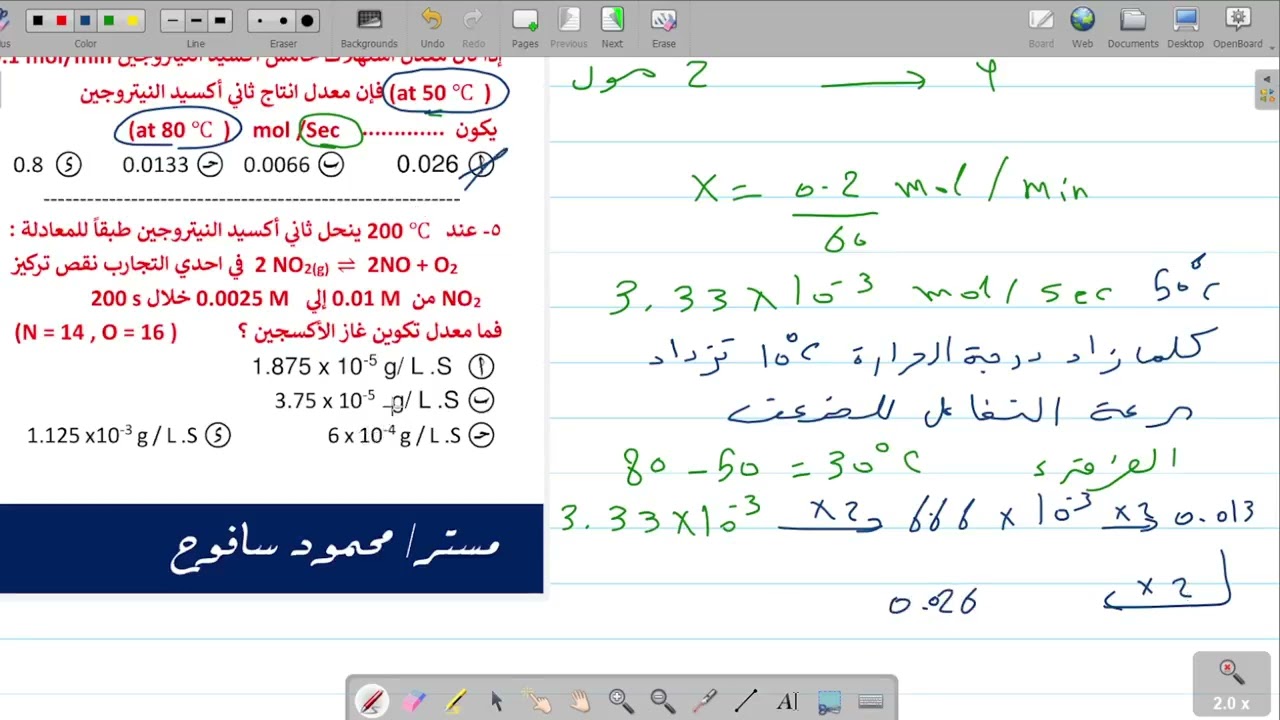 Color Line Eraser Backgrounds Undo Redo Pages Previous Next Erase Board Web Documents Desktop OpenBoard
(at 50 °C ) فإن معدل انتاج ثاني أكسيد النيتروجين
يكون ............. mol /Sec (at 80 °C )
أ 0.026 ب 0.0066 جـ 0.0133 د 0.8
------------------------------------------------------------
٥- عند 200 °C ينحل ثاني أكسيد النيتروجين طبقاً للمعادلة :
2 NO₂(g) ⇌ 2NO + O₂ في احدي التجارب نقص تركيز
NO₂ من 0.01 M إلي 0.0025 M خلال 200 s
فما معدل تكوين غاز الأكسجين ؟ (N = 14 , O = 16 )
أ 1.875 x 10⁻⁵ g/ L .S
ب 3.75 x 10⁻⁵ g/ L .S
جـ 6 x 10⁻⁴ g / L .S د 1.125 x10⁻³ g / L .S
مستر/ محمود سافوح
مول 2 → 4
X = 0.2 mol / min
60
3.33 x 10⁻³ mol / sec 50°C
كلما زاد درجة الحرارة 10°C تزداد
سرعة التفاعل للضعف
80 - 50 = 30°C
3.33 x 10⁻³ x 2 → 666 x 10⁻³ x 2 → 0.013
x 2
0.026
2.0 x